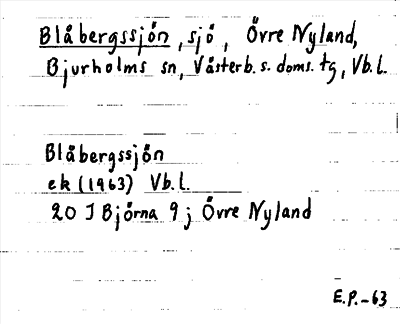 Blåbergssjön, sjö, Övre Nyland,
Bjurholms sn, Västerb. s. doms. tg, Vb. l.
Blåbergssjön
ek (1963) Vb. l.
20 J Björna 9 j Övre Nyland
E.P.-63